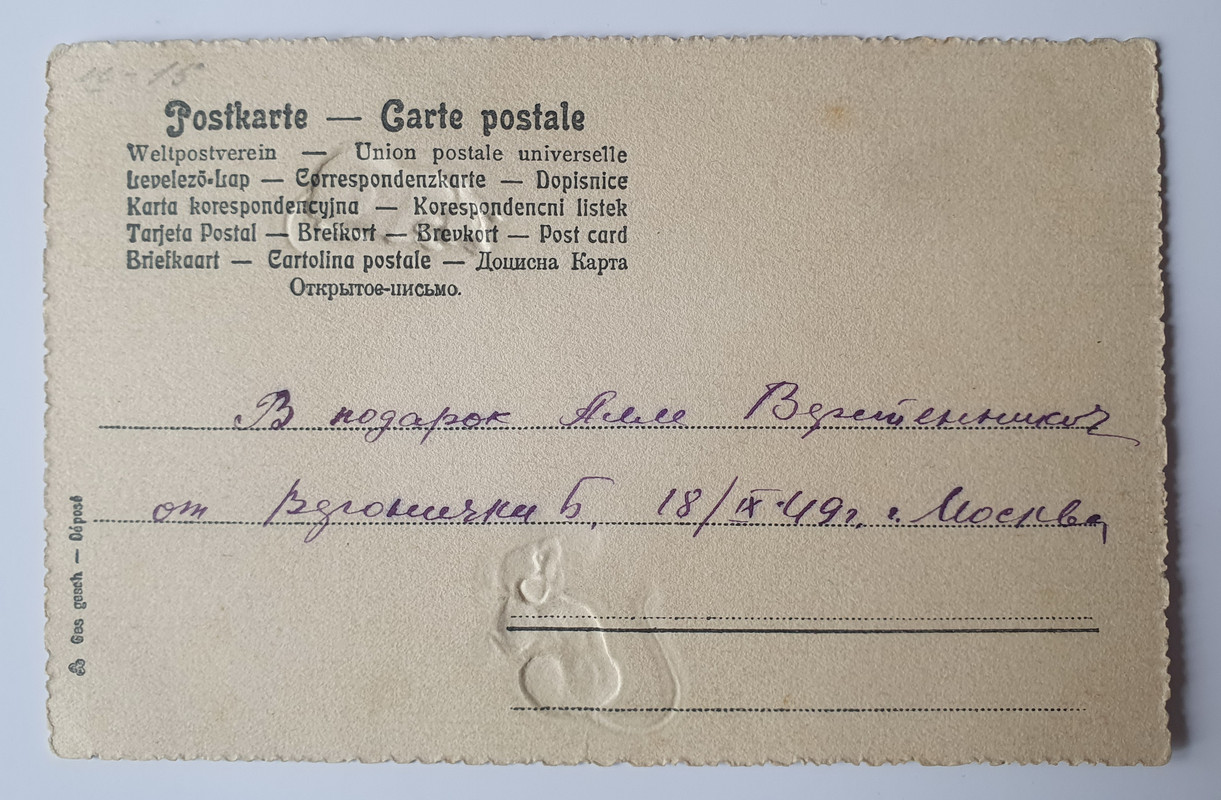 Postkarte — Carte postale
Weltpostverein — Union postale universelle
Levelező-Lap — Correspondenzkarte — Dopisnice
Karta korespondencyjna — Korespondencni listek
Tarjeta Postal — Brefkort — Brevkort — Post card
Briefkaart — Cartolina postale — Доцисна Карта
Открытое-письмо.
В подарок Алле
от Веронички Б. 18/IX-49г. г. Москва
Ges gesch — Déposé